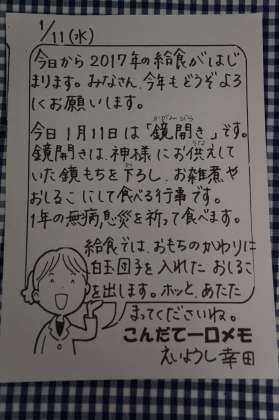 1/11(水)
今日から2017年の給食がはじ
まります。みなさん、今年もどうぞよろ
しくお願いします。
今日1月11日は「鏡開き」です。
鏡開きは、神様にお供えして
いた鏡もちを下ろし、お雑煮や
おしるこにして食べる行事です。
1年の無病息災を祈って食べます。
給食では、おもちのかわりに
白玉団子を入れた おしるこ
を出します。ホッと、あたた
まってくださいね。
こんだて一口メモ
えいようし 幸田